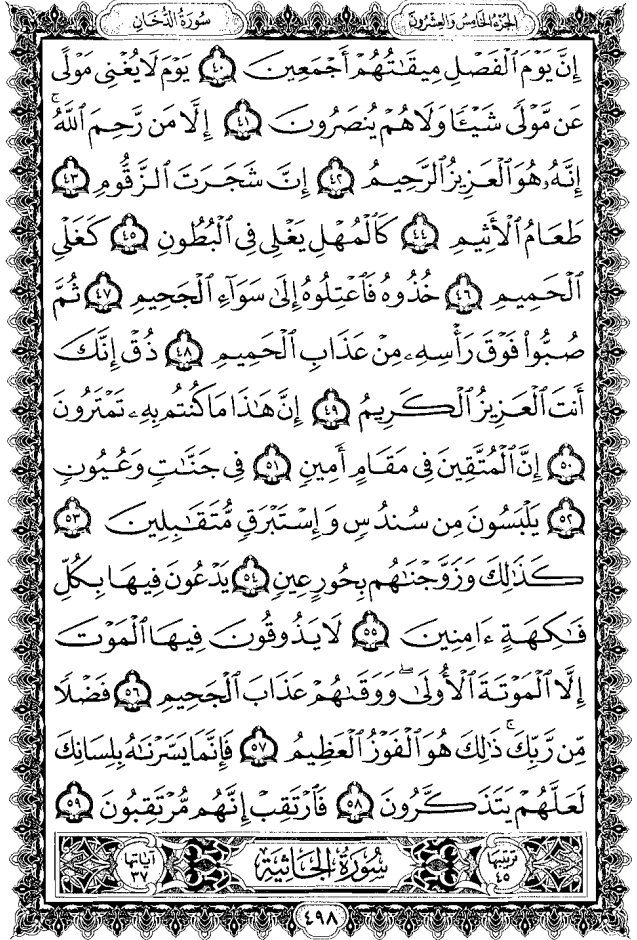 الجزء الخامس والعشرون
سورة الدخان
إِنَّ يَوْمَ ٱلْفَصْلِ مِيقَٰتُهُمْ أَجْمَعِينَ ٤٠ يَوْمَ لَا يُغْنِى مَوْلًى
عَن مَّوْلًى شَيْـًٔا وَلَا هُمْ يُنصَرُونَ ٤١ إِلَّا مَن رَّحِمَ ٱللَّهُ ۚ
إِنَّهُۥ هُوَ ٱلْعَزِيزُ ٱلرَّحِيمُ ٤٢ إِنَّ شَجَرَتَ ٱلزَّقُّومِ ٤٣
طَعَامُ ٱلْأَثِيمِ ٤٤ كَٱلْمُهْلِ يَغْلِى فِى ٱلْبُطُونِ ٤٥ كَغَلْىِ
ٱلْحَمِيمِ ٤٦ خُذُوهُ فَٱعْتِلُوهُ إِلَىٰ سَوَآءِ ٱلْجَحِيمِ ٤٧ ثُمَّ
صُبُّوا۟ فَوْقَ رَأْسِهِۦ مِنْ عَذَابِ ٱلْحَمِيمِ ٤٨ ذُقْ إِنَّكَ
أَنتَ ٱلْعَزِيزُ ٱلْكَرِيمُ ٤٩ إِنَّ هَٰذَا مَا كُنتُم بِهِۦ تَمْتَرُونَ
٥٠ إِنَّ ٱلْمُتَّقِينَ فِى مَقَامٍ أَمِينٍ ٥١ فِى جَنَّٰتٍ وَعُيُونٍ
٥٢ يَلْبَسُونَ مِن سُندُسٍ وَإِسْتَبْرَقٍ مُّتَقَٰبِلِينَ ٥٣
كَذَٰلِكَ وَزَوَّجْنَٰهُم بِحُورٍ عِينٍ ٥٤ يَدْعُونَ فِيهَا بِكُلِّ
فَٰكِهَةٍ ءَامِنِينَ ٥٥ لَا يَذُوقُونَ فِيهَا ٱلْمَوْتَ
إِلَّا ٱلْمَوْتَةَ ٱلْأُولَىٰ ۖ وَوَقَىٰهُمْ عَذَابَ ٱلْجَحِيمِ ٥٦ فَضْلًا
مِّن رَّبِّكَ ۚ ذَٰلِكَ هُوَ ٱلْفَوْزُ ٱلْعَظِيمُ ٥٧ فَإِنَّمَا يَسَّرْنَٰهُ بِلِسَانِكَ
لَعَلَّهُمْ يَتَذَكَّرُونَ ٥٨ فَٱرْتَقِبْ إِنَّهُم مُّرْتَقِبُونَ ٥٩
ترتيبها ٤٥ سورة الجاثية آياتها ٣٧
٤٩٨